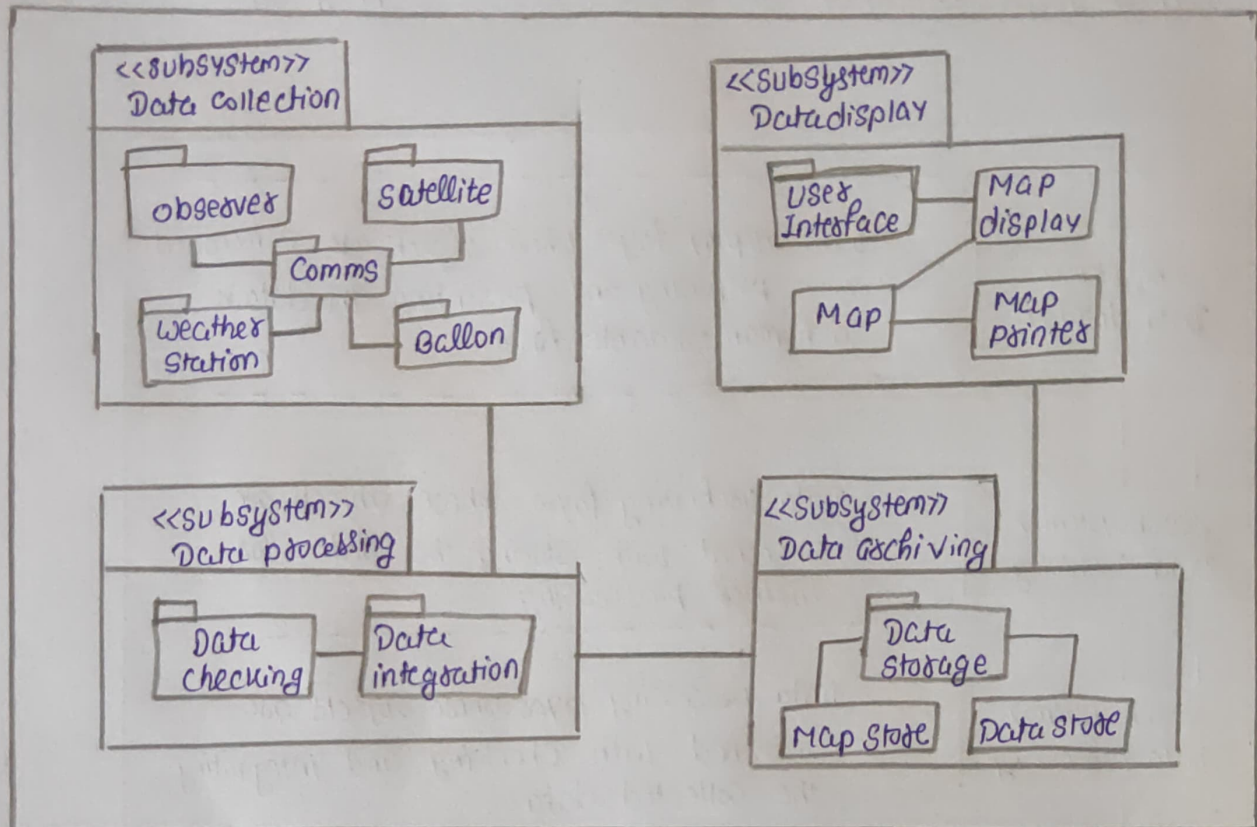 <<subsystem>>
Data collection
observer
satellite
Comms
weather
station
Ballon
<<subsystem>>
Datadisplay
User
Interface
Map
display
Map
Map
printer
<<subsystem>>
Data processing
Data
checking
Data
integration
<<subsystem>>
Data archiving
Data
storage
Map store
Data store